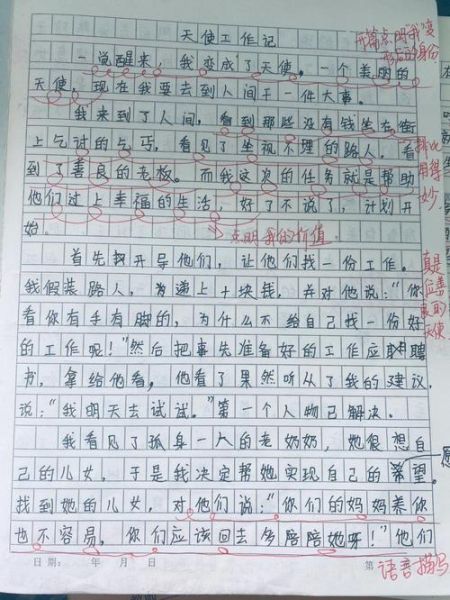 天使工作记
开篇点明"我"变
形后的身份
一觉醒来，我变成了天使。一个美丽的
天使，现在我要去到人间干一件大事。
我来到了人间，看到那些没有钱坐在街
上乞讨的乞丐，看见了坐视不理的路人，看
到了善良的老板。而我这次的任务就是帮助
他们过上幸福的生活，好了不说了，计划开
始。
排比
用得
妙
点明我的价值
首先我开导他们，让他们找一份工作。
我假装路人，为递上十块钱，并对他说："你
看你有手有脚的，为什么不给自己找一份好
的工作呢！"然后把事先准备好的工作应聘
书，拿给他看，他看了果然听从了我的建议，
说："我明天去试试。"第一个人物已解决。
真是
位善
良的
天使
我看见了孤身一人的老奶奶，她很想自
己的儿女，于是我决定帮她实现自己的希望。
找到她的儿女，对他们说："你们的妈妈养你
也不容易，你们应该回去多陪陪她呀！"他们
日期： 年 月 日
第
语言描写